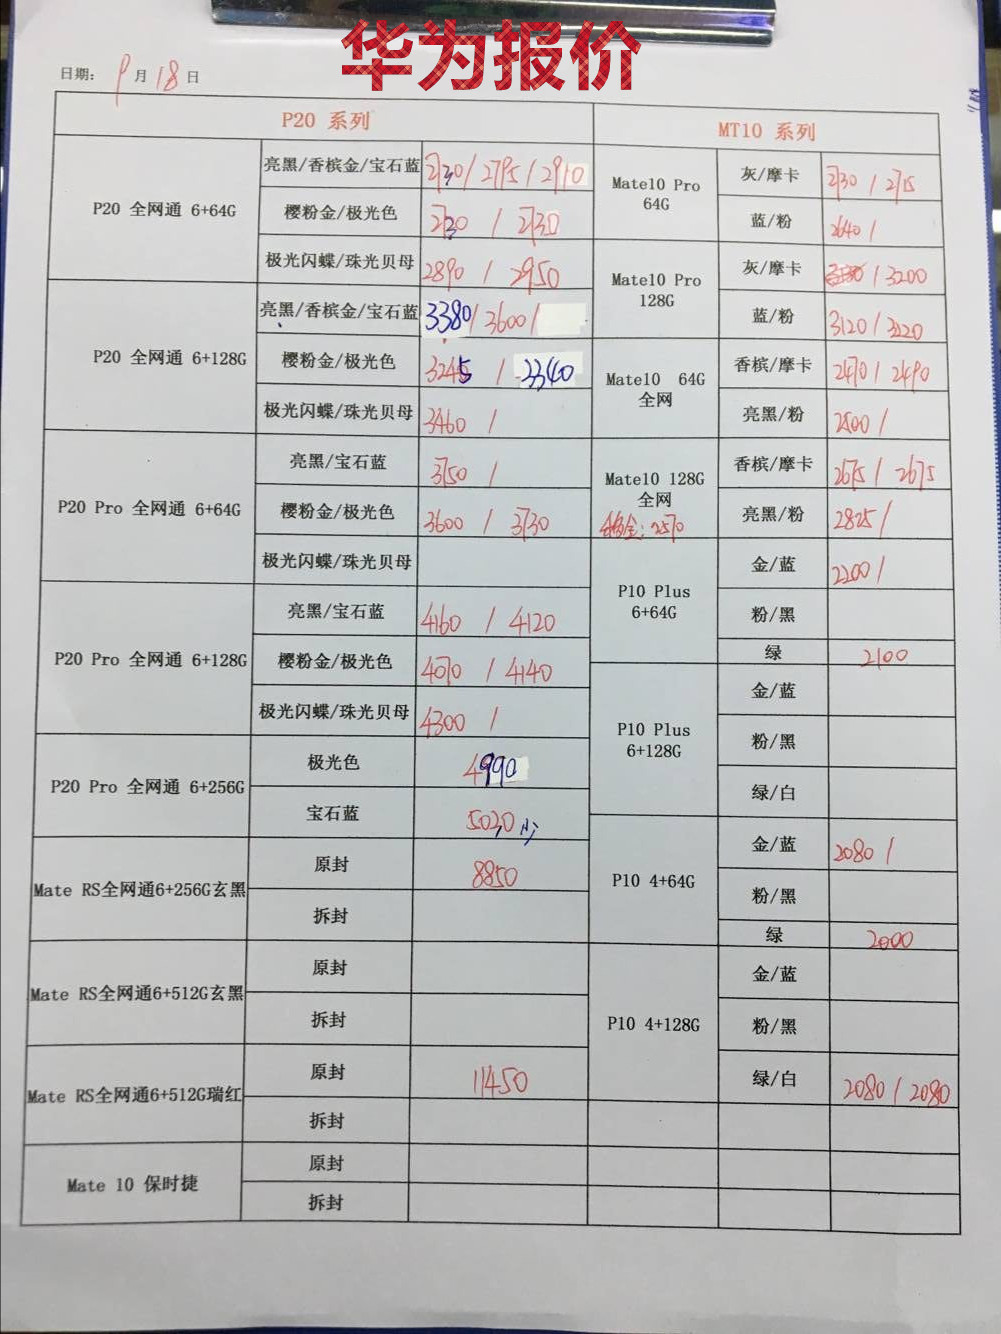 华为报价
日期: 9月18日
P20 系列
MT10 系列
P20 全网通 6+64G
亮黑/香槟金/宝石蓝 2730/2795/2910
樱粉金/极光色 2730 / 2730
极光闪蝶/珠光贝母 2890 / 2950
P20 全网通 6+128G
亮黑/香槟金/宝石蓝 3380/3600/
樱粉金/极光色 3245 / 3340
极光闪蝶/珠光贝母 3460 /
P20 Pro 全网通 6+64G
亮黑/宝石蓝 3750 /
樱粉金/极光色 3600 / 3730
极光闪蝶/珠光贝母
P20 Pro 全网通 6+128G
亮黑/宝石蓝 4160 / 4120
樱粉金/极光色 4070 / 4140
极光闪蝶/珠光贝母 4300 /
P20 Pro 全网通 6+256G
极光色 4990
宝石蓝 5020
Mate RS全网通6+256G玄黑
原封 8850
拆封
Mate RS全网通6+512G玄黑
原封
拆封
Mate RS全网通6+512G瑞红
原封 11450
拆封
Mate 10 保时捷
原封
拆封
Mate10 Pro
64G
灰/摩卡 2730 / 2715
蓝/粉 2640 /
Mate10 Pro
128G
灰/摩卡 / 3200
蓝/粉 3120 / 3220
Mate10 64G
全网
香槟/摩卡 2470 / 2490
亮黑/粉 2500 /
Mate10 128G
全网
金: 2570
香槟/摩卡 2675 / 2675
亮黑/粉 2825 /
P10 Plus
6+64G
金/蓝 2200 /
粉/黑
绿 2100
P10 Plus
6+128G
金/蓝
粉/黑
绿/白
P10 4+64G
金/蓝 2080 /
粉/黑
绿 2000
P10 4+128G
金/蓝
粉/黑
绿/白 2080 / 2080